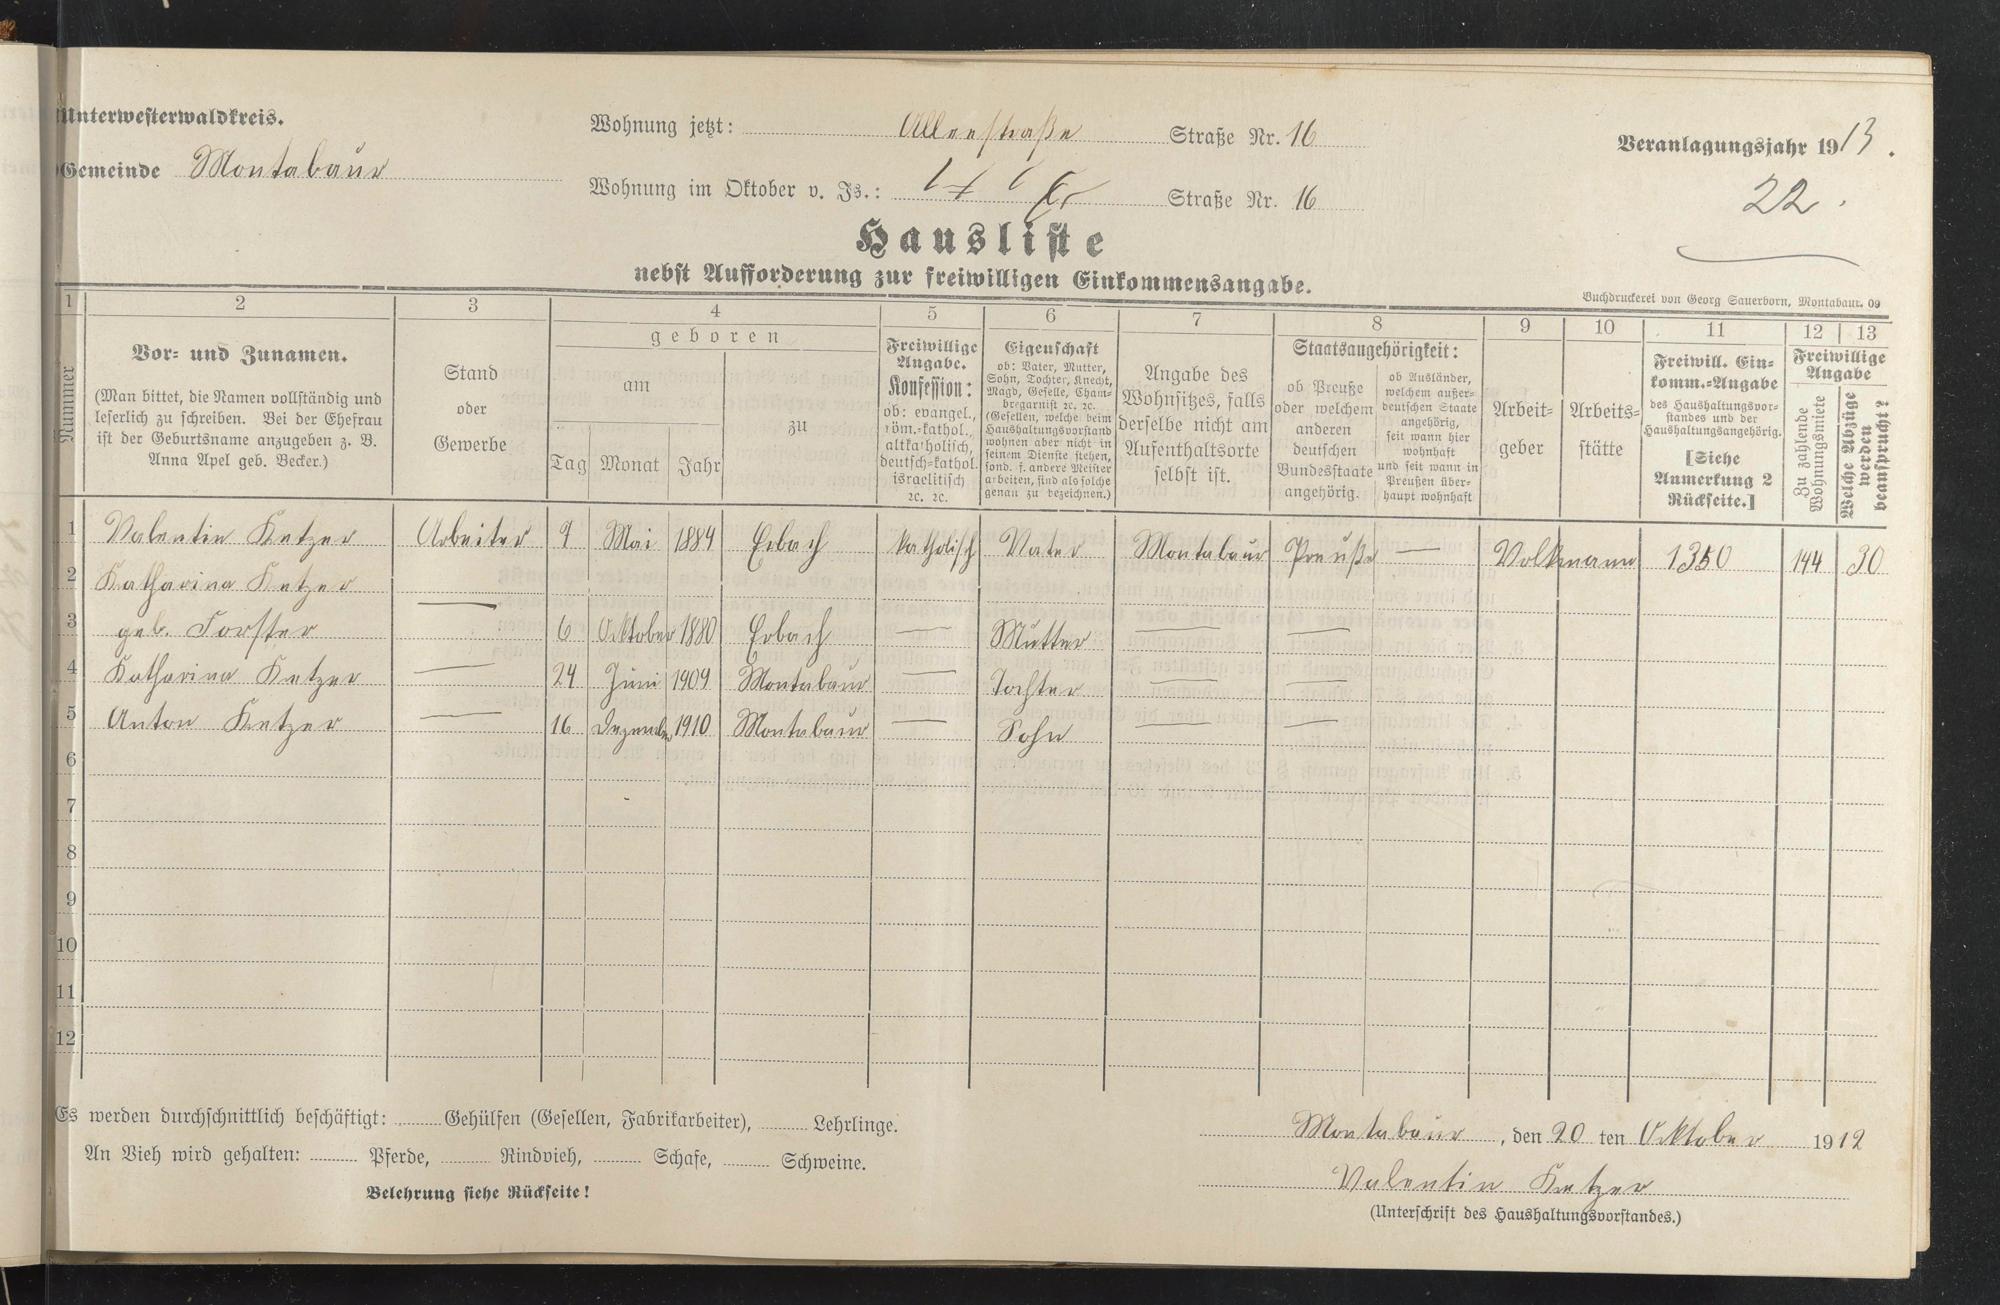 Unterwesterwaldkreis.
Gemeinde Montabaur
Wohnung jetzt: Alleestraße Straße Nr. 16
Wohnung im Oktober v. Js.: Straße Nr. 16
Veranlagungsjahr 1913.
22.
Hausliste
nebst Aufforderung zur freiwilligen Einkommensangabe.
Buchdruckerei von Georg Sauerborn, Montabaur. 09
1 2 3 4 5 6 7 8 9 10 11 12 13
Nummer
Vor- und Zunamen.
(Man bittet, die Namen vollständig und
leserlich zu schreiben. Bei der Ehefrau
ist der Geburtsname anzugeben z. B.
Anna Apel geb. Becker.)
Stand
oder
Gewerbe
geboren
am
zu
Tag Monat Jahr
Freiwillige
Angabe.
Konfession:
ob: evangel.,
röm.-kathol.,
altkatholisch,
deutsch-kathol.
israelitisch
ꝛc. ꝛc.
Eigenschaft
ob: Vater, Mutter,
Sohn, Tochter, Knecht,
Magd, Geselle, Cham-
bregarnist ꝛc. ꝛc.
(Gesellen, welche beim
Haushaltungsvorstand
wohnen aber nicht in
seinem Dienste stehen,
sond. f. andere Meister
arbeiten, sind als solche
genau zu bezeichnen.)
Angabe des
Wohnsitzes, falls
derselbe nicht am
Aufenthaltsorte
selbst ist.
Staatsangehörigkeit:
ob Preuße
oder welchem
anderen
deutschen
Bundesstaate
angehörig.
ob Ausländer,
welchem außer-
deutschen Staate
angehörig,
seit wann hier
wohnhaft
und seit wann in
Preußen über-
haupt wohnhaft
Arbeit-
geber
Arbeits-
stätte
Freiwill. Ein-
komm.-Angabe
des Haushaltungsvor-
standes und der
Haushaltungsangehörig.
[Siehe
Anmerkung 2
Rückseite.]
Freiwillige
Angabe
Zu zahlende
Wohnungsmiete
Welche Abzüge
werden
beansprucht?
1 Valentin Ketzer Arbeiter 9 Mai 1884 Erbach katholisch Vater Montabaur Preuße — Volkmann 1350 144 30
2 Katharina Ketzer —
3 geb. Forster 6 Oktober 1880 Erbach — Mutter — —
4 Katharina Ketzer — 24 Juni 1909 Montabaur — Tochter — —
5 Anton Ketzer — 16 Dezember 1910 Montabaur — Sohn — —
6
7
8
9
10
11
12
Es werden durchschnittlich beschäftigt: Gehülfen (Gesellen, Fabrikarbeiter), Lehrlinge.
An Vieh wird gehalten: Pferde, Rindvieh, Schafe, Schweine.
Belehrung siehe Rückseite!
Montabaur, den 20 ten Oktober 1912
Valentin Ketzer
(Unterschrift des Haushaltungsvorstandes.)